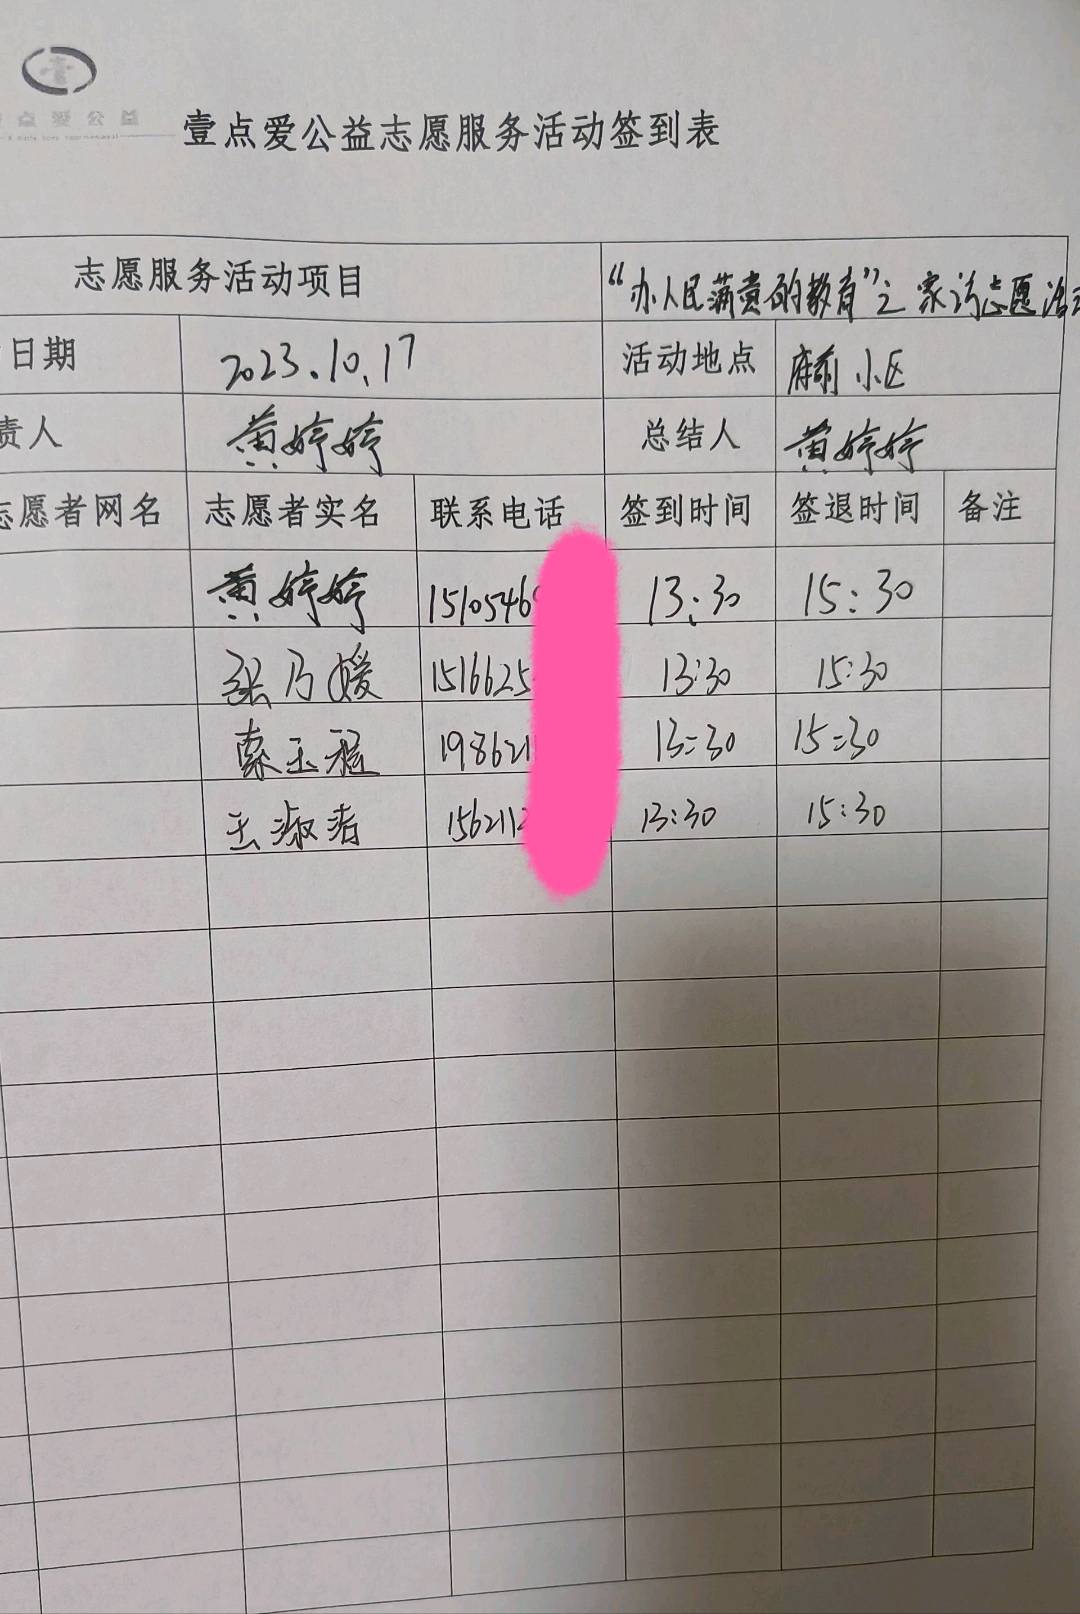 点爱公益
壹点爱公益志愿服务活动签到表
志愿服务活动项目 “办人民满意的教育”之家访志愿活动
日期 2023.10.17 活动地点 府前小区
责人 黄婷婷 总结人 黄婷婷
志愿者网名 志愿者实名 联系电话 签到时间 签退时间 备注
黄婷婷 1510546 13:30 15:30
张乃媛 1516625 13:30 15:30
索玉程 198621 13:30 15:30
王淑涛 1562112 13:30 15:30